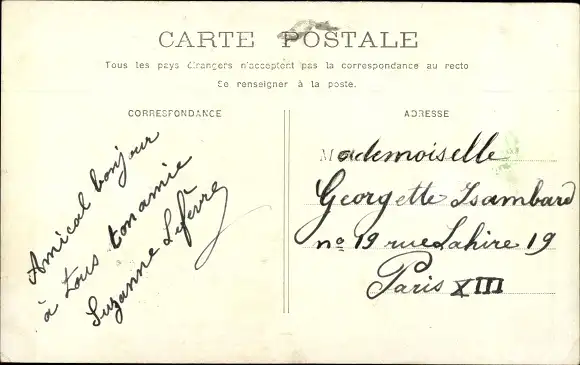 CARTE POSTALE
Tous les pays étrangers n'acceptent pas la correspondance au recto
Se renseigner à la poste.
CORRESPONDANCE
Amical bonjour
à tous ton amie
Suzanne Lefèvre
ADRESSE
Mademoiselle
Georgette Isambard
no 19 rue Lahire 19
Paris XIII